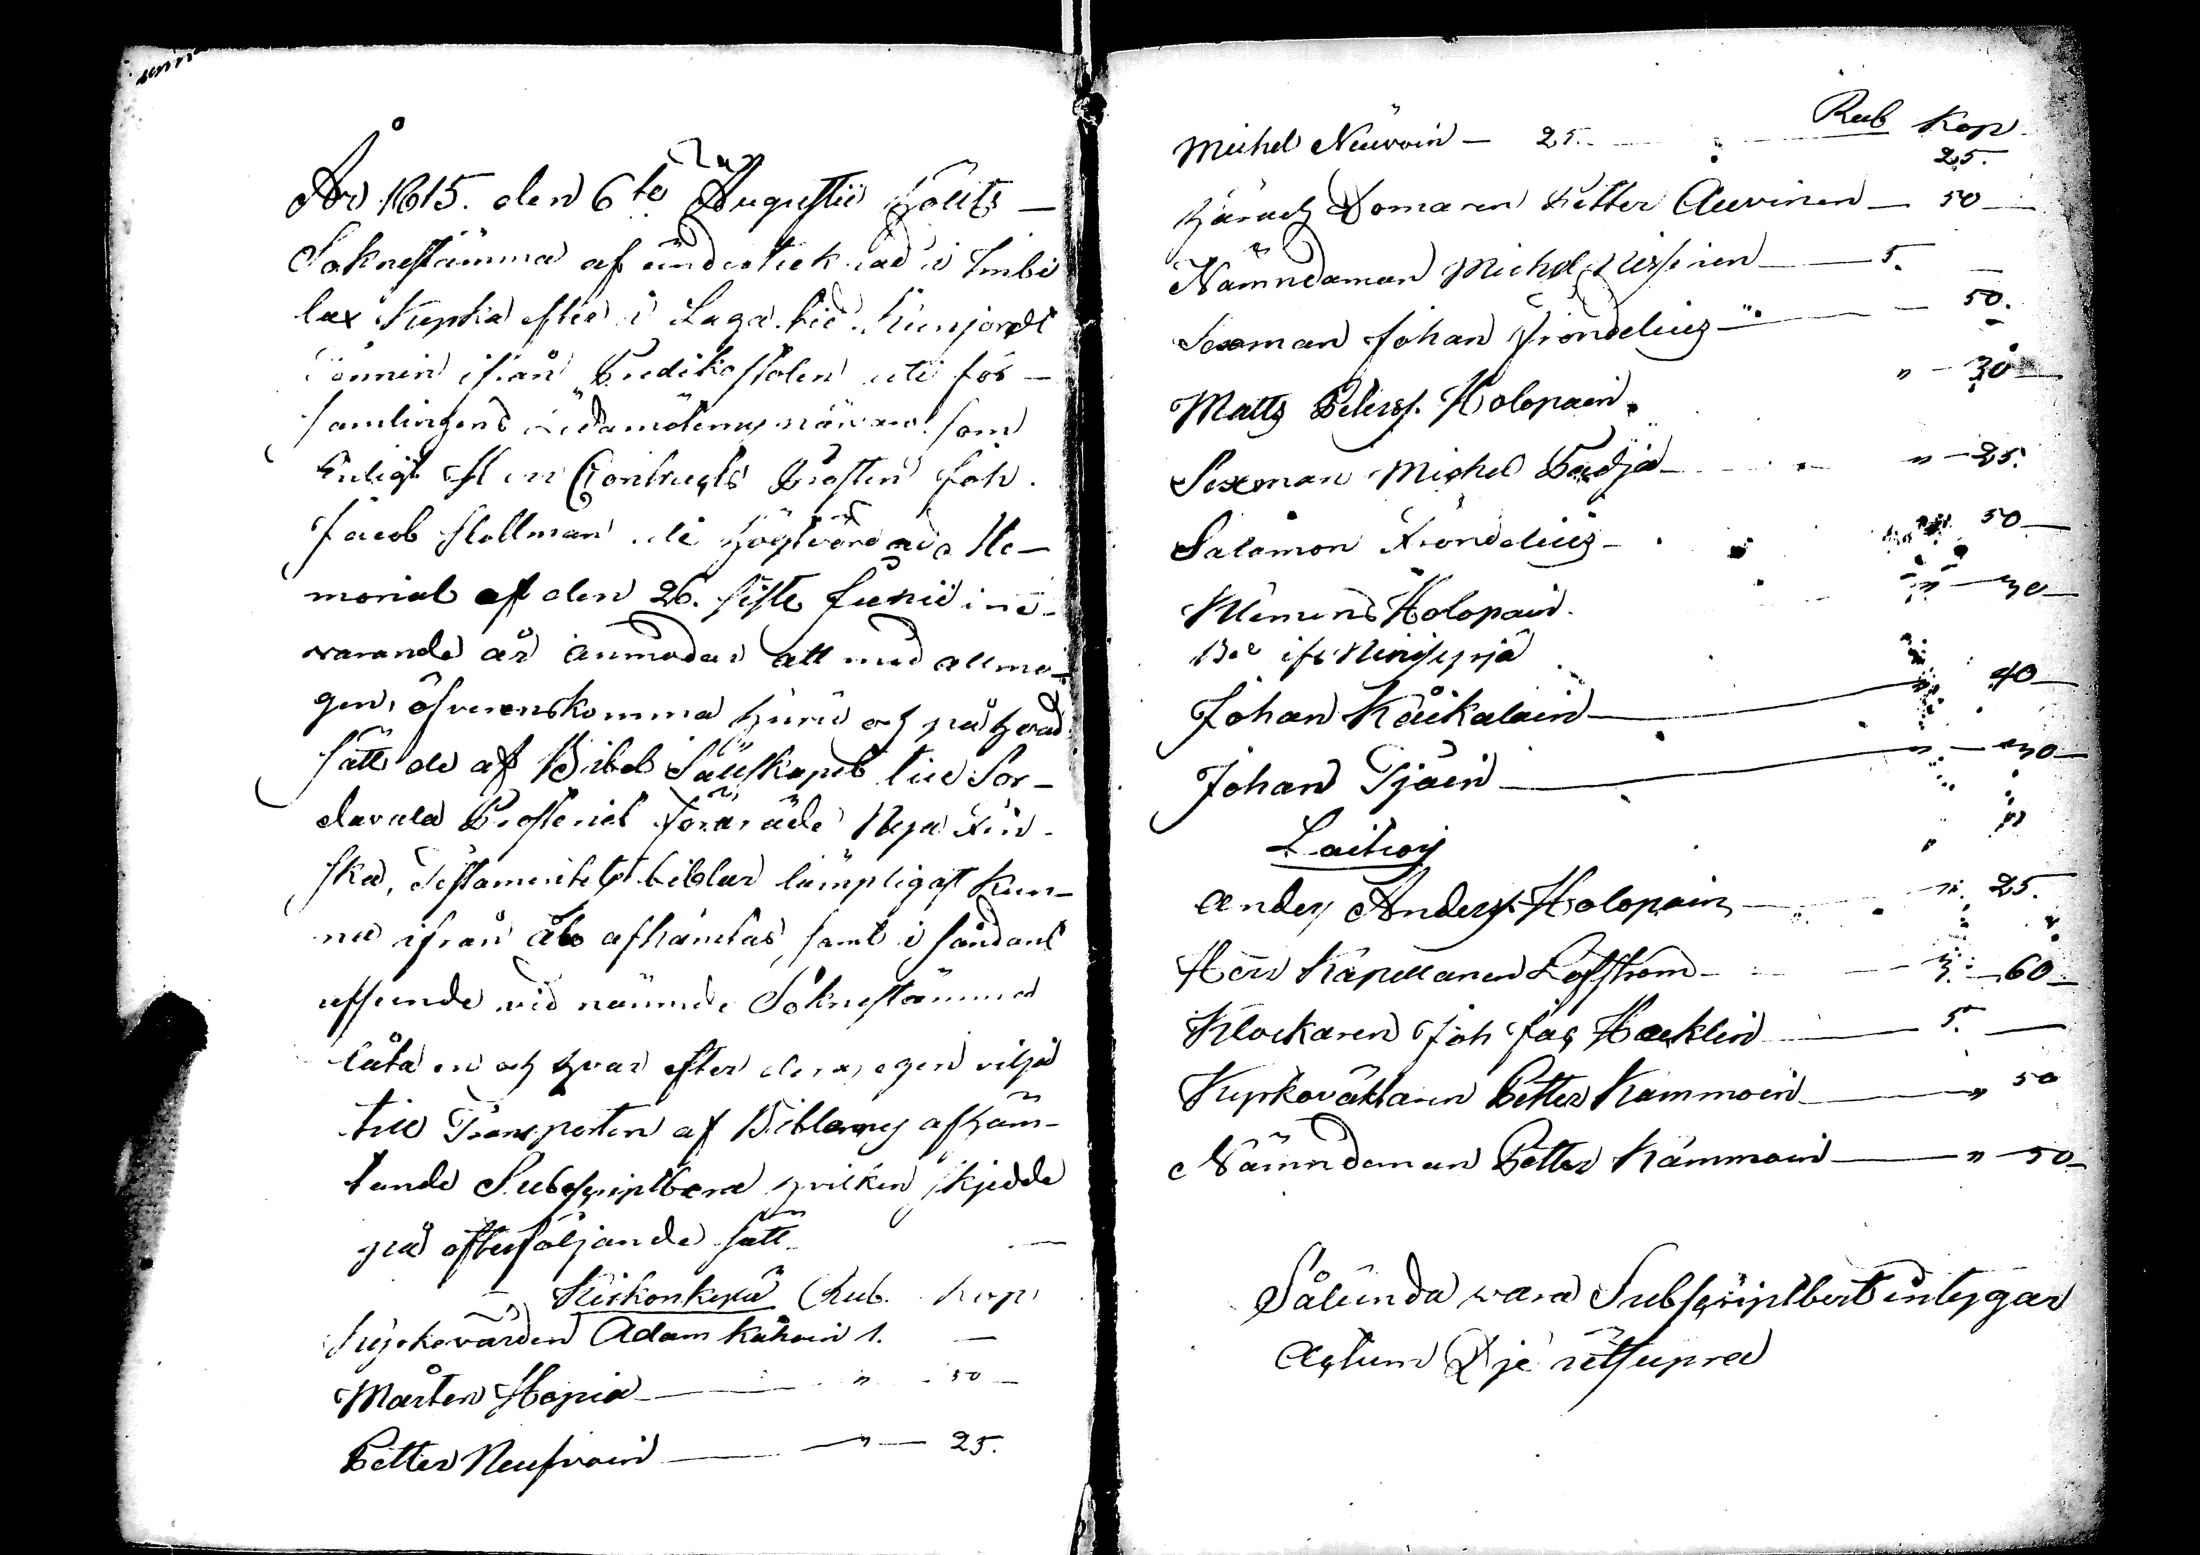 År 1815. den 6te Augustii hölts
Soknestämma af undertecknad i Imbi
lax Kyrka efter i Laga tid kungjordt
ifrån Predikstolen uti för-
samlingens ledamöters närvaro som
Enligt H err Contracts Prosten Joh.
Jacob Hollman de Högtvördade Me-
morial af den 26. siste Junii inne-
varande år anmodar att med allmo-
gen, öfverenskomma huru och på hvad
sätt de af Bibel Sällskapet till Sor-
davala Prosteriet förärade Nya Fin-
ska, Testamentets biblar lämpligast kun-
na ifrån Åbo afhämtas, samt i sådant
afseende vid nämnde Soknestämma
låta en och hvar efter deras egen vilja
till Transporten af Biblarnes afhäm-
tande Subscribera hvilken skjedde
på efterföljande sätt
Rub. Kop
Kyrkovärden Adam Kähöin 1. —
Mårten Hopia — " 50 —
Petter Neufvoin — " — 25.
Rub Kop
Michel Neuvoin — 25. 25.
Härads Domaren Petter Auvinen — 50 —
Nämndeman Michel — 5. —
Sexman Johan Frondelius — 50.
Matts Peterss. Holopain " — 30 —
Sexman Michel " — 25.
Salomon Frondelius — 50 —
Klemens Holopain " — 30 —
Johan Käikälain — 40 —
Johan Tjäin — " — 30 —
Anders Anderss. Holopain — " 25.
Herr Kapellanen Löfström — 3. — 60 —
Klockaren Joh Jac Hæcklin — 5. —
Kyrkoväktaren Petter Kämmöin — " 50
Nämndeman Petter Kämmöin — " — 50 —
Sålunda vara Subscriberat intygar
Actum Die ut supra